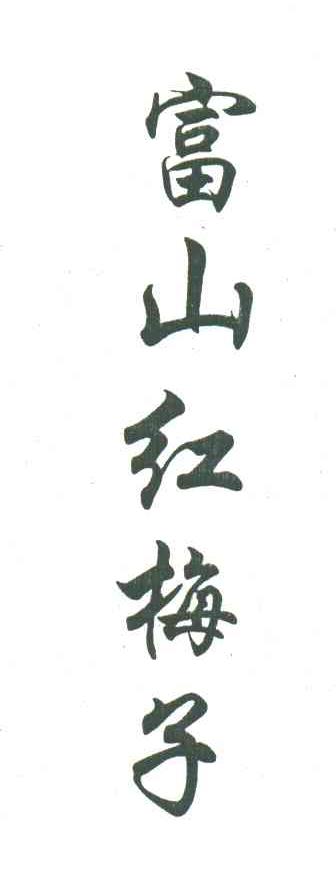 富山红梅子